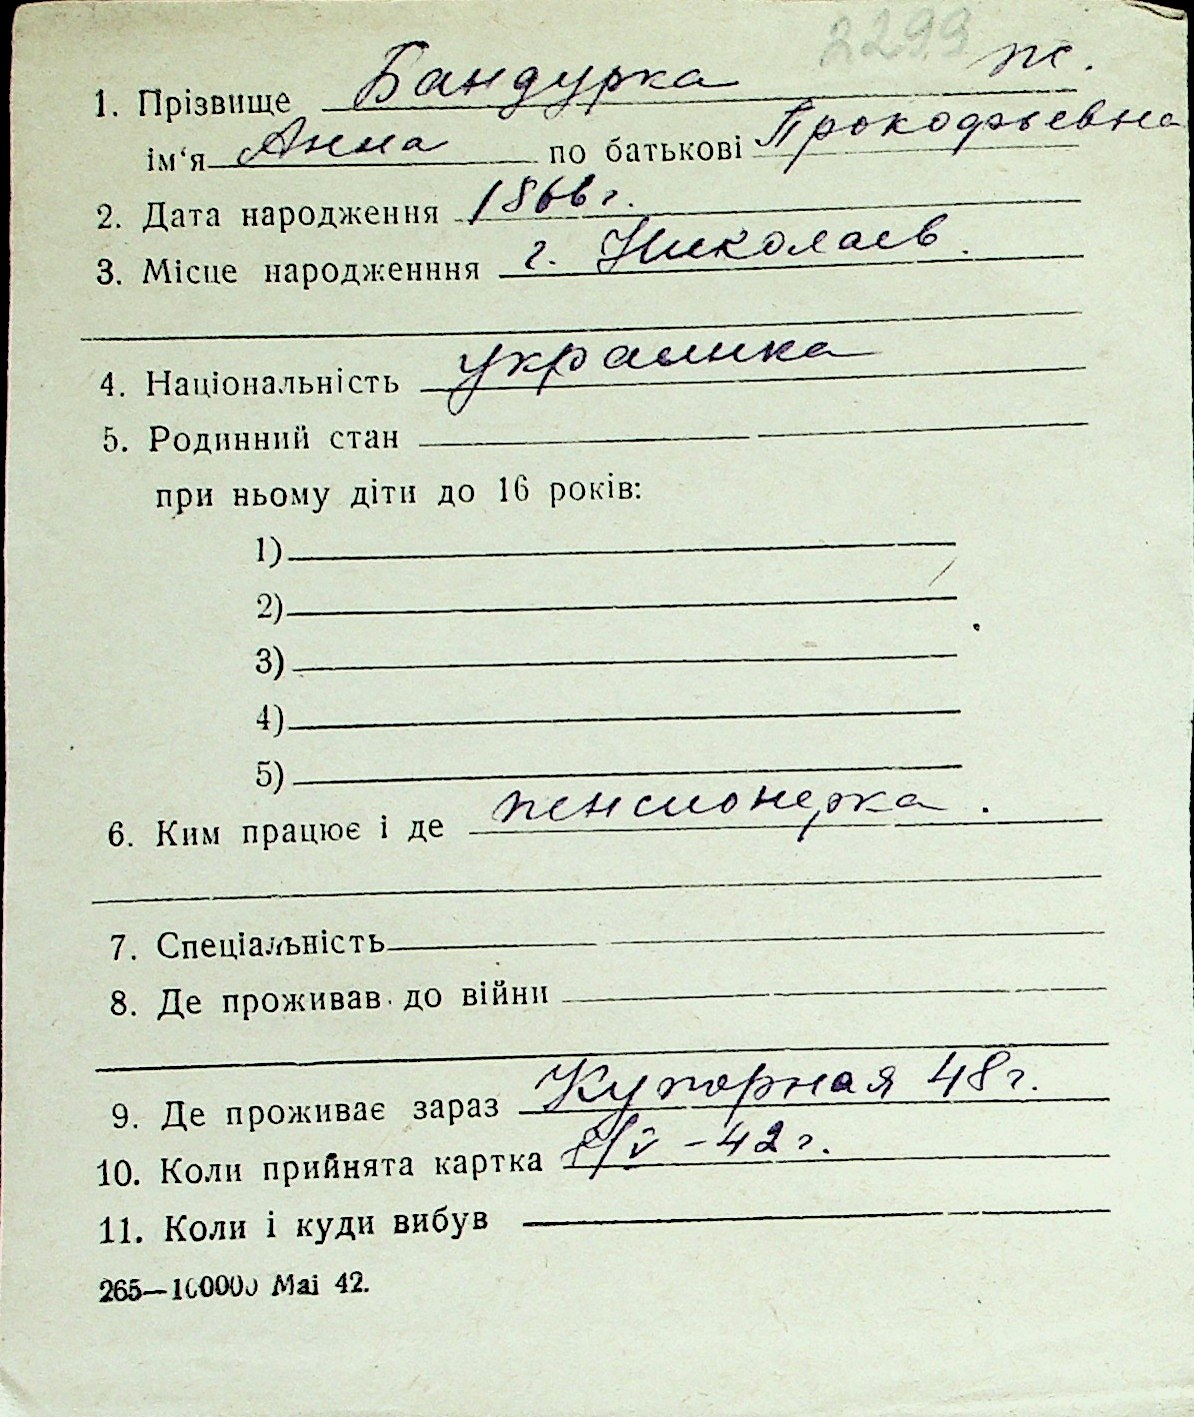 2299
1. Прізвище Бандурка ж.
ім‘я Анна по батькові Прокофьевна
2. Дата народження 1866 г.
3. Місце народженння г. Николаев.
4. Національність украинка
5. Родинний стан
при ньому діти до 16 років:
1)
2)
3)
4)
5)
6. Ким працює і де пенсионерка.
7. Спеціальність
8. Де проживав до війни
9. Де проживає зараз Купорная 48 г.
10. Коли прийнята картка /V – 42 г.
11. Коли і куди вибув
265—100000 Mai 42.